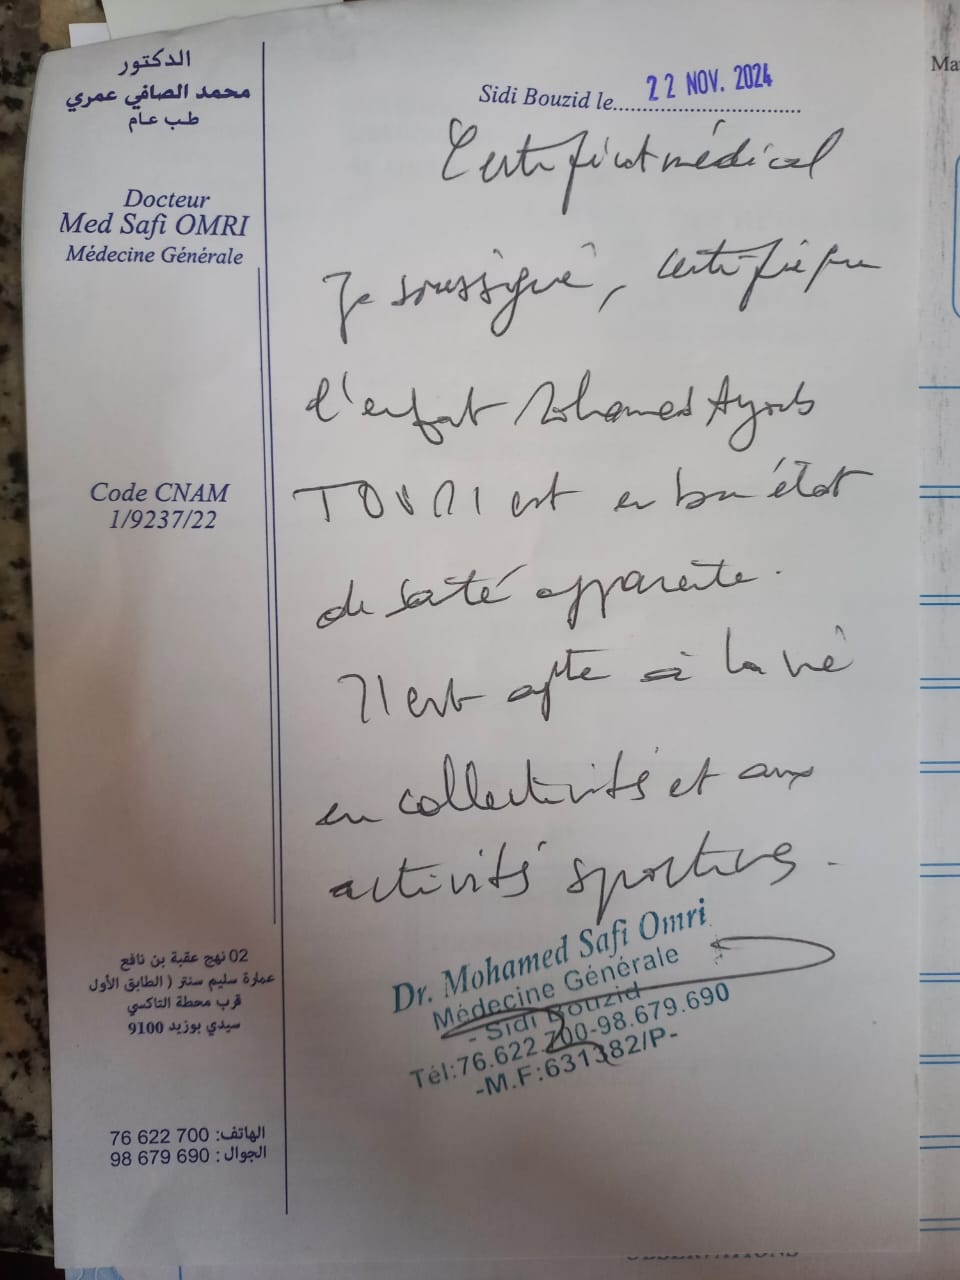 الدكتور
محمد الصافي عمري
طب عام
Docteur
Med Safi OMRI
Médecine Générale
Code CNAM
1/9237/22
02 نهج عقبة بن نافع
عمارة سليم سنتر ( الطابق الأول
قرب محطة التاكسي
سيدي بوزيد 9100
الهاتف: 700 622 76
الجوال : 690 679 98
Sidi Bouzid le 22 NOV. 2024
Certificat médical
Je soussigné, certifie que
l'enfant Mohamed Ayoub
TOURI est en bon état
de santé apparente.
Il est apte à la vie
en collectivités et aux
activités sportives.
Dr. Mohamed Safi Omri
Médecine Générale
- Sidi Bouzid
Tél:76.622.700-98.679.690
-M.F:631382/P-